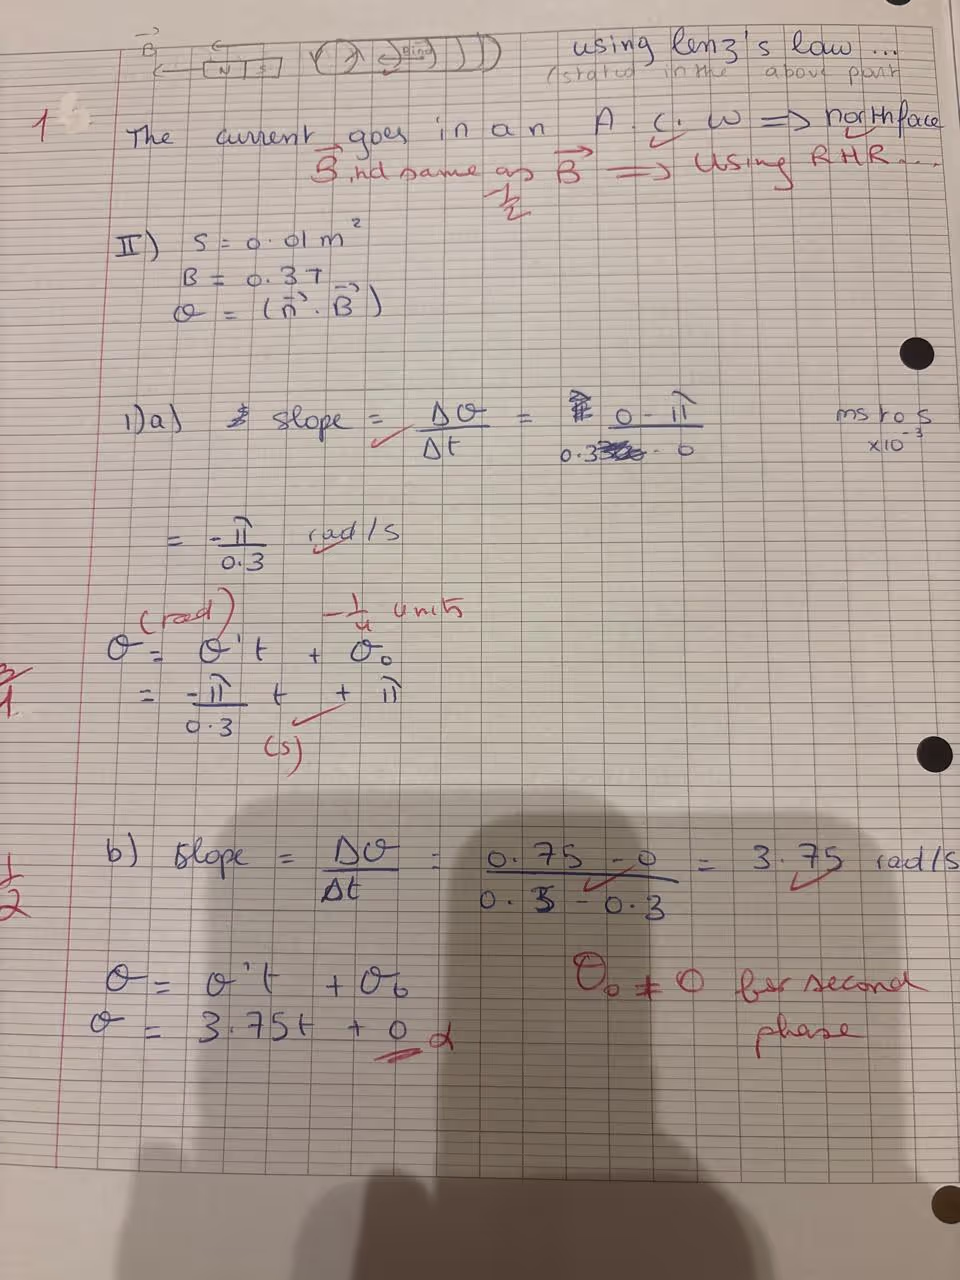 B
N S
using lenz's law...
(stated in the above part
1
The current goes in an A.C.W => north face
Bind same as B => using RHR....
-1/2
II) S = 0.01 m²
B = 0.3T
θ = (n . B)
1)a) slope = Δθ/Δt = 0 - π / 0.3 - 0
ms to s
x10⁻³
= -π/0.3 rad/s
(rad)
-1/4 units
θ = θ't + θ₀
= -π/0.3 t + π
(s)
b) slope = Δθ/Δt = 0.75 - 0 / 0.5 - 0.3 = 3.75 rad/s
1/2
θ = θ't + θ₀
θ₀ ≠ 0 for second phase
θ = 3.75t + 0